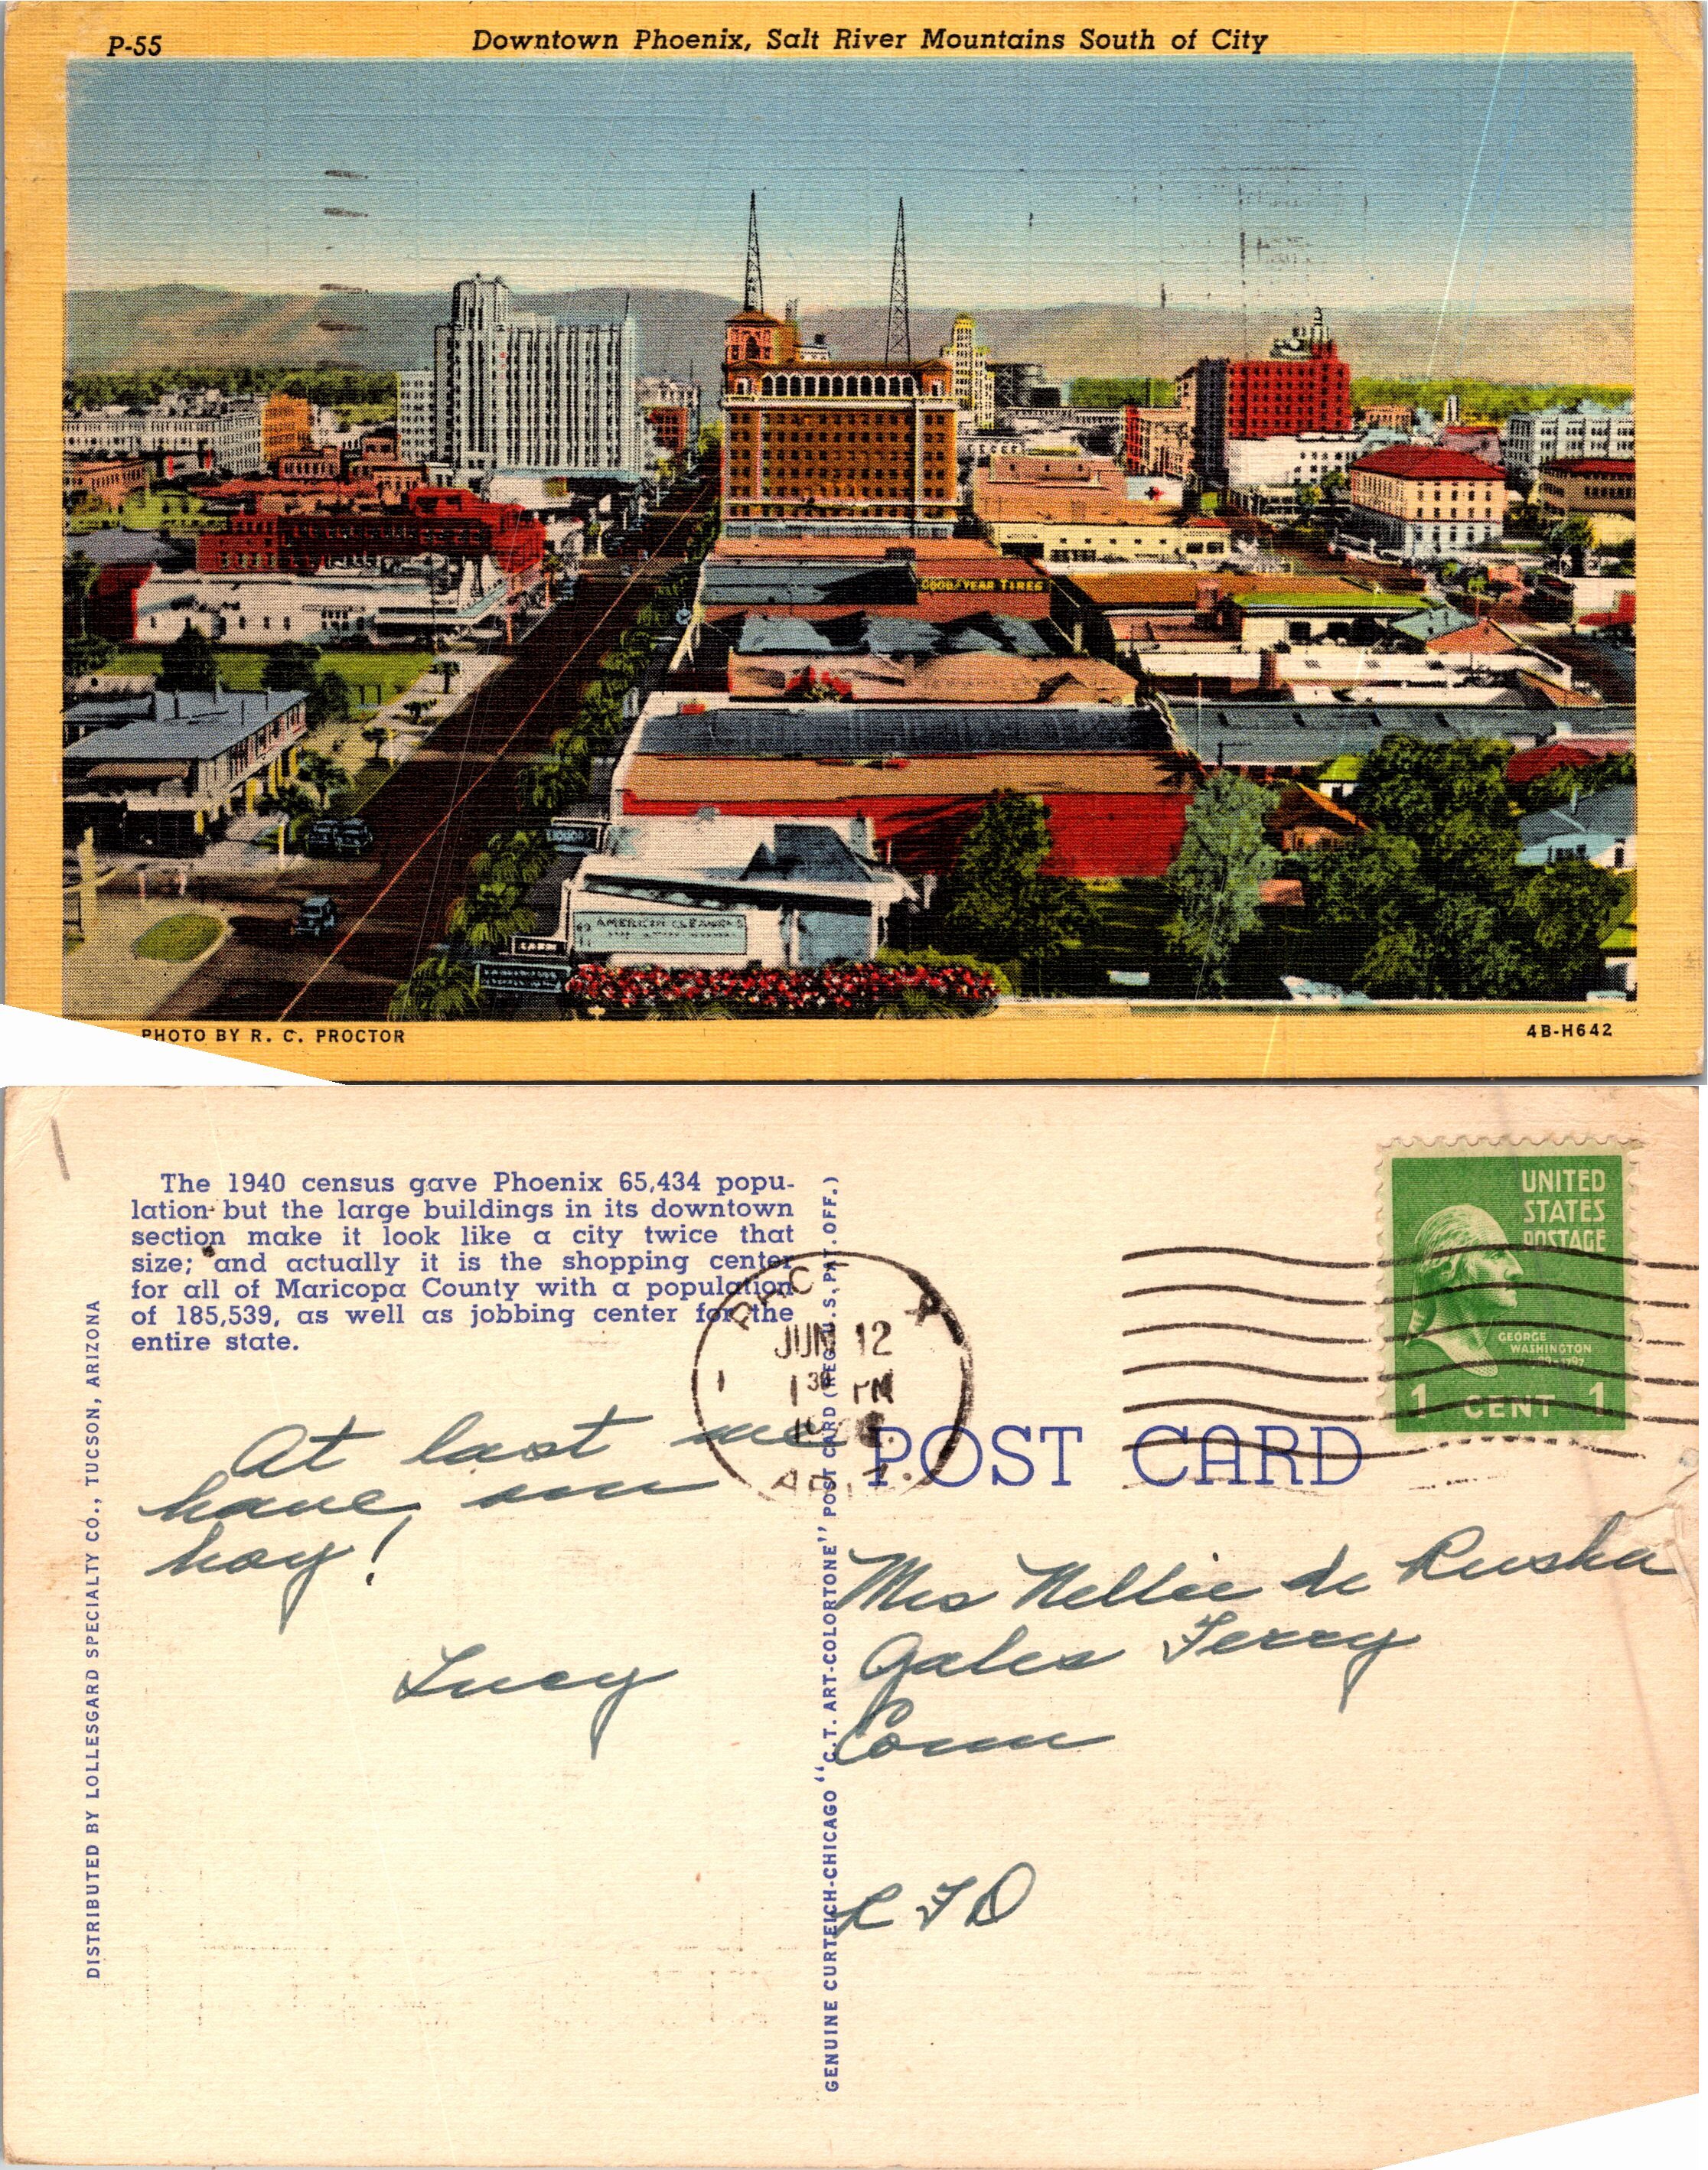 P-55
Downtown Phoenix, Salt River Mountains South of City
GOODYEAR TIRES
LIQUORS
AMERICAN CLEANERS
PHOTO BY R. C. PROCTOR
4B-H642
The 1940 census gave Phoenix 65,434 popu-
lation but the large buildings in its downtown
section make it look like a city twice that
size; and actually it is the shopping center
for all of Maricopa County with a population
of 185,539, as well as jobbing center for the
entire state.
DISTRIBUTED BY LOLLESGARD SPECIALTY CO., TUCSON, ARIZONA
GENUINE CURTEICH-CHICAGO "C.T. ART-COLORTONE" POST CARD (REG. U.S. PAT. OFF.)
JUN 12
1 30 PM
UNITED
STATES
POSTAGE
GEORGE
WASHINGTON
1 CENT 1
POST CARD
At last we
have our
boy!
Lucy
Mrs Nellie de Rusha
Gales Ferry
Conn
R F D